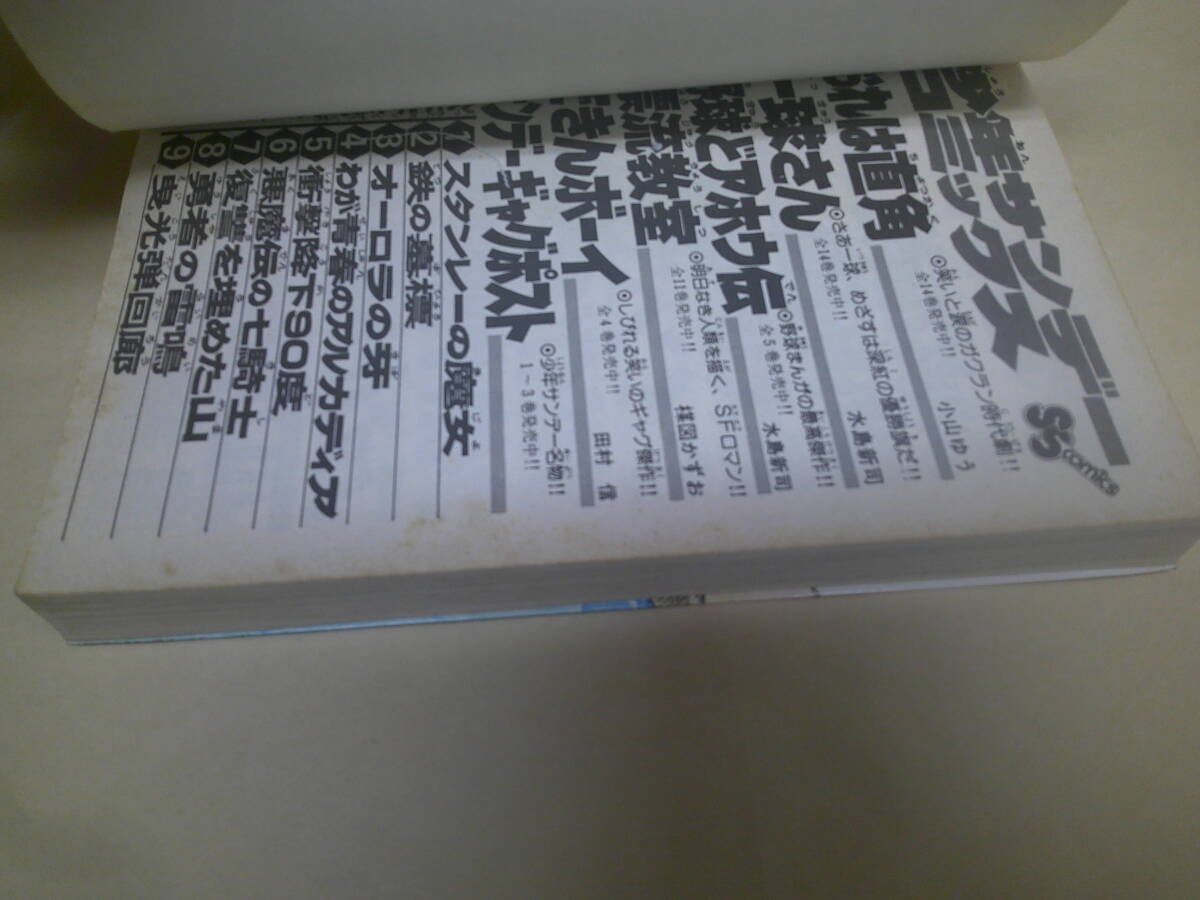 少年サンデー
コミックス
SS comics
れは直角
◎笑いと涙のガクラン時代劇!!
全14巻発売中!!
小山ゆう
一球さん
◎さあ一球、めざすは深紅の優勝旗だ!!
全14巻発売中!!
水島新司
球どアホウ伝
◎野球まんがの最高傑作!!
全5巻発売中!!
水島新司
流教室
◎明日なき人類を描く、SFロマン!!
全11巻発売中!!
楳図かずお
さんボーイ
◎しびれる笑いのギャグ傑作!!
全4巻発売中!!
田村 信
ンデーギャグポスト
◎少年サンデー名物!!
1~3巻発売中!!
1 スタンレーの魔女
2 鉄の墓標
3 オーロラの牙
4 わが青春のアルカディア
5 衝撃降下90度
6 悪魔伝の七騎士
7 復讐を埋めた山
8 勇者の雷鳴
9 曳光弾回廊